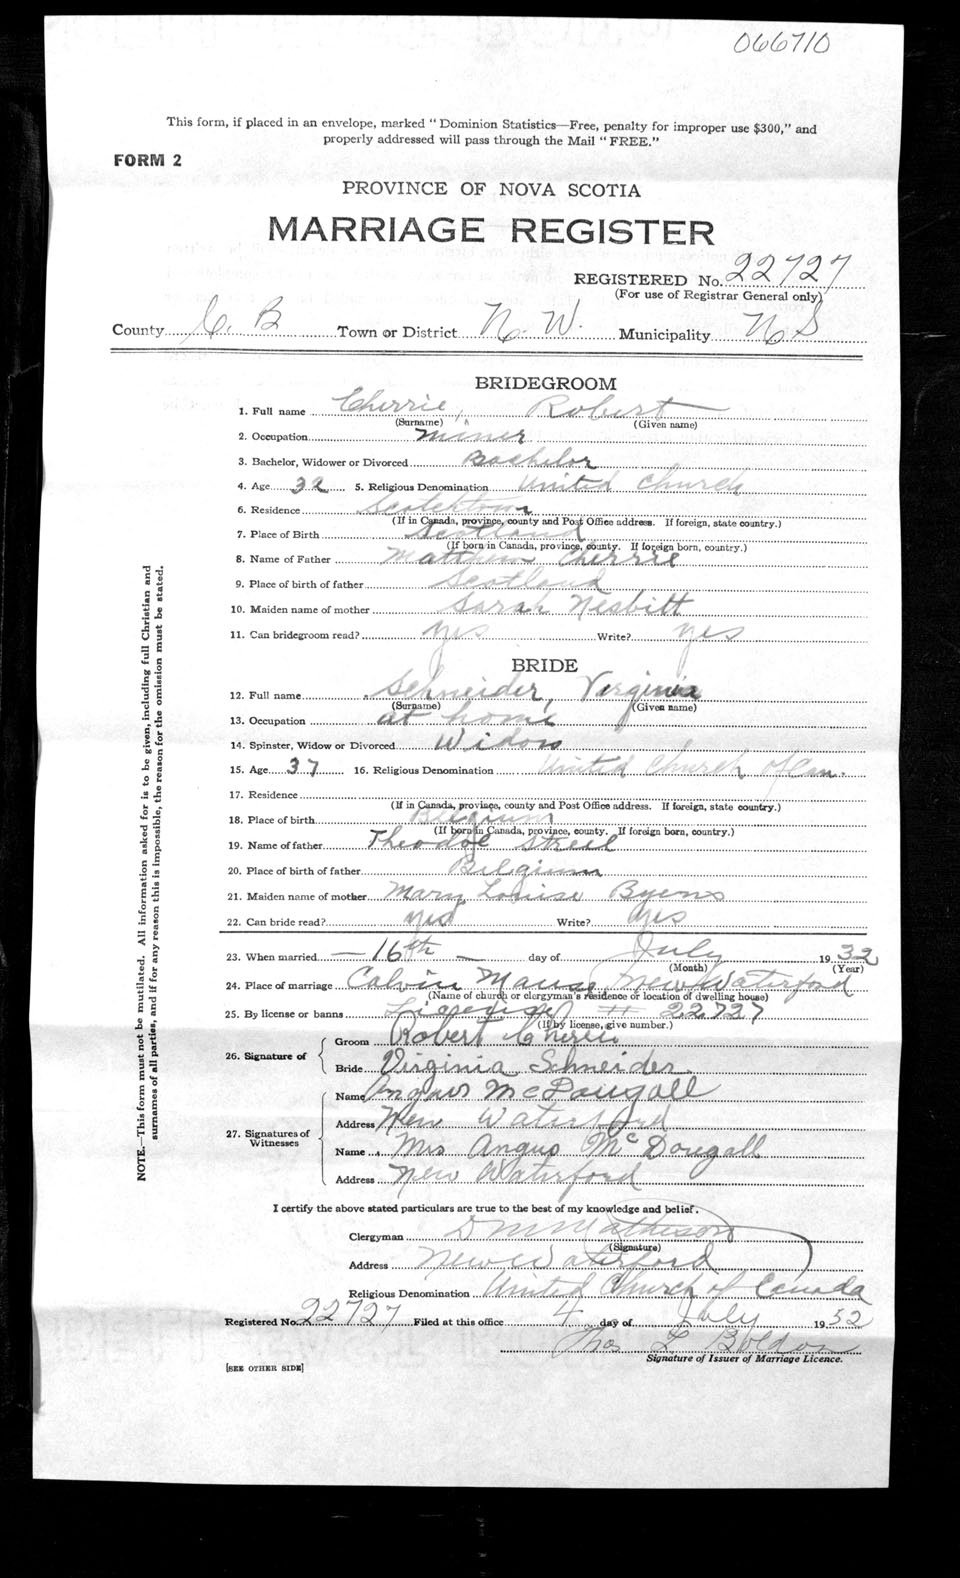 066710
This form, if placed in an envelope, marked "Dominion Statistics—Free, penalty for improper use $300," and
properly addressed will pass through the Mail "FREE."
FORM 2
PROVINCE OF NOVA SCOTIA
MARRIAGE REGISTER
REGISTERED No. 22727
(For use of Registrar General only)
County C. B Town or District N. W. Municipality N S
BRIDEGROOM
1. Full name Cherrie, Robert
(Surname) (Given name)
2. Occupation miner
3. Bachelor, Widower or Divorced Bachelor
4. Age 32 5. Religious Denomination United Church
6. Residence Scotchtown
(If in Canada, province, county and Post Office address. If foreign, state country.)
7. Place of Birth Scotland
(If born in Canada, province, county. If foreign born, country.)
8. Name of Father Matthew Cherrie
9. Place of birth of father Scotland
10. Maiden name of mother Sarah Nesbitt
11. Can bridegroom read? yes Write? yes
BRIDE
12. Full name Schneider, Virginia
(Surname) (Given name)
13. Occupation at home
14. Spinster, Widow or Divorced Widow
15. Age 37 16. Religious Denomination United Church of Can.
17. Residence
(If in Canada, province, county and Post Office address. If foreign, state country.)
18. Place of birth Belgium
(If born in Canada, province, county. If foreign born, country.)
19. Name of father Streil
20. Place of birth of father Belgium
21. Maiden name of mother Mary Louise Byens
22. Can bride read? yes Write? yes
23. When married — 16th — day of July 1932
(Month) (Year)
24. Place of marriage Calvin Manse, New Waterford
(Name of church or clergyman's residence or location of dwelling house)
25. By license or banns License # 22727
(If by license, give number.)
26. Signature of
Groom Robert Cherrie
Bride Virginia Schneider
27. Signatures of
Witnesses
Name Angus McDougall
Address New Waterford
Name Mrs Angus McDougall
Address New Waterford
I certify the above stated particulars are true to the best of my knowledge and belief.
Clergyman D M Matheson
(Signature)
Address New Waterford
Religious Denomination United Church of Canada
Registered No. 22727 Filed at this office 4 day of July 1932
Thos L Boldon
Signature of Issuer of Marriage Licence.
[SEE OTHER SIDE]
NOTE.—This form must not be mutilated. All information asked for is to be given, including full Christian and
surnames of all parties, and if for any reason this is impossible, the reason for the omission must be stated.